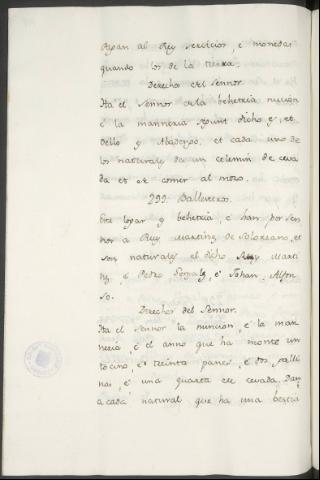 Pagan al Rey servicios, é monedas
quando los de la tierra.
Derechos del Sennor.
Ha el Sennor de la behetria nuncion
é la manneria segunt dicho es, et
dello y Abadengo, et cada uno de
los naturales da un celemin de ceva
da et de comer al mozo.
299. Ballenezas.
Este logar es behetria, é han por Sen
nor a Ruy Martinez de Solorzano, et
son naturales el dicho Ruy Marti
nez, é Pedro Gonzalez, é Johan Alfon
so.
Derechos del Sennor.
Ha el Sennor la nuncion, é la man
neria, é el anno que ha monte un
tocino, et treinta panes é dos galli
nas, é una quarta de cevada. Dan
a cada natural que ha una bestia